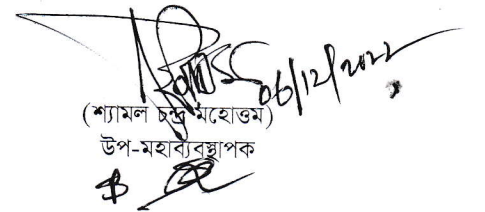 06/12/2022
(শ্যামল চন্দ্র মহোত্তম)
উপ-মহাব্যবস্থাপক